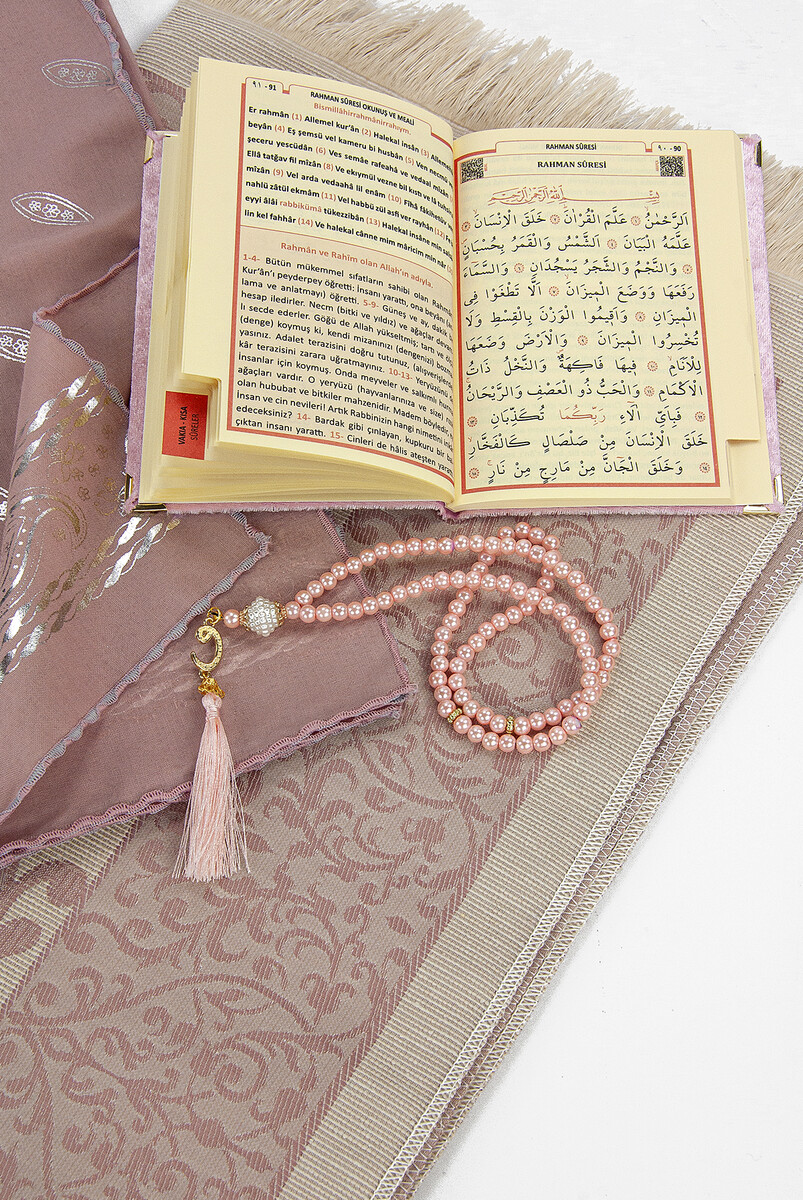 ٩١ - 91
RAHMAN SÛRESİ OKUNUŞ VE MEALİ
Bismillâhirrahmânirrahıym.
Er rahmân (1) Allemel kur'ân (2) Halekal insân (3) Allemehül
beyân (4) Eş şemsü vel kameru bi husbân (5) Ven necmü veş
şeceru yescüdân (6) Ves semâe rafeahâ ve vedaal mîzân
Ellâ tatğav fil mîzân (8) Ve ekıymül vezne bil kıstı ve lâ tuhsirul
mîzân (9) Vel arda vedaahâ lil enâm (10) Fîhâ fâkihetüv ven
nahlü zâtül ekmâm (11) Vel habbü zül asfi ver rayhân (12) Fe
eyyi âlâi rabbikümâ tükezzibân (13) Halekal insâne min salsâ-
lin kel fahhâr (14) Ve halekal cânne mim mâricim min nâr
Rahmân ve Rahîm olan Allah'ın adıyla.
1-4- Bütün mükemmel sıfatların sahibi olan Rahmân
Kur'ân'ı peyderpey öğretti: İnsanı yarattı, ona beyânı (an-
lama ve anlatmayı) öğretti. 5-9- Güneş ve ay, dakik bir
hesap iledirler. Necm (bitki ve yıldız) ve ağaçlar devam-
lı secde ederler. Göğü de Allah yükseltmiş; tam ve ölçü
(denge) koymuş ki, kendi mizanınızı (dengenizi) bozma-
yasınız. Adalet terazisini doğru tutunuz, (alışverişlerde)
kâr terazisini zarara uğratmayınız. 10-13- Yeryüzünü de
İnsanlar için koymuş. Onda meyveler ve salkımlı hurma
ağaçları vardır. O yeryüzü (hayvanlarınıza ve size) rızık
olan hububat ve bitkiler mahzenidir. Madem böyledir,
İnsan ve cin nevileri! Artık Rabbinizin hangi nimetini inkâr
edeceksiniz? 14- Bardak gibi çınlayan, kupkuru bir bal-
çıktan insanı yarattı. 15- Cinleri de hâlis ateşten yarattı.
VAKIA - KISA
SÛRELER
RAHMAN SÛRESİ
٩٠ - 90
RAHMAN SÛRESİ
بِسْمِ اللهِ الرَّحْمٰنِ الرَّحِيمِ
اَلرَّحْمٰنُ عَلَّمَ الْقُرْاٰنَ خَلَقَ الْاِنْسَانَ
عَلَّمَهُ الْبَيَانَ اَلشَّمْسُ وَالْقَمَرُ بِحُسْبَانٍ
وَالنَّجْمُ وَالشَّجَرُ يَسْجُدَانِ وَالسَّمَاءَ
رَفَعَهَا وَوَضَعَ الْمِيزَانَ اَلَّا تَطْغَوْا فِى
الْمِيزَانِ وَاَقِيمُوا الْوَزْنَ بِالْقِسْطِ وَلَا
تُخْسِرُوا الْمِيزَانَ وَالْاَرْضَ وَضَعَهَا
لِلْاَنَامِ فِيهَا فَاكِهَةٌ وَالنَّخْلُ ذَاتُ
الْاَكْمَامِ وَالْحَبُّ ذُو الْعَصْفِ وَالرَّيْحَانُ
فَبِاَىِّ اٰلَاءِ رَبِّكُمَا تُكَذِّبَانِ
خَلَقَ الْاِنْسَانَ مِنْ صَلْصَالٍ كَالْفَخَّارِ
وَخَلَقَ الْجَانَّ مِنْ مَارِجٍ مِنْ نَارٍ